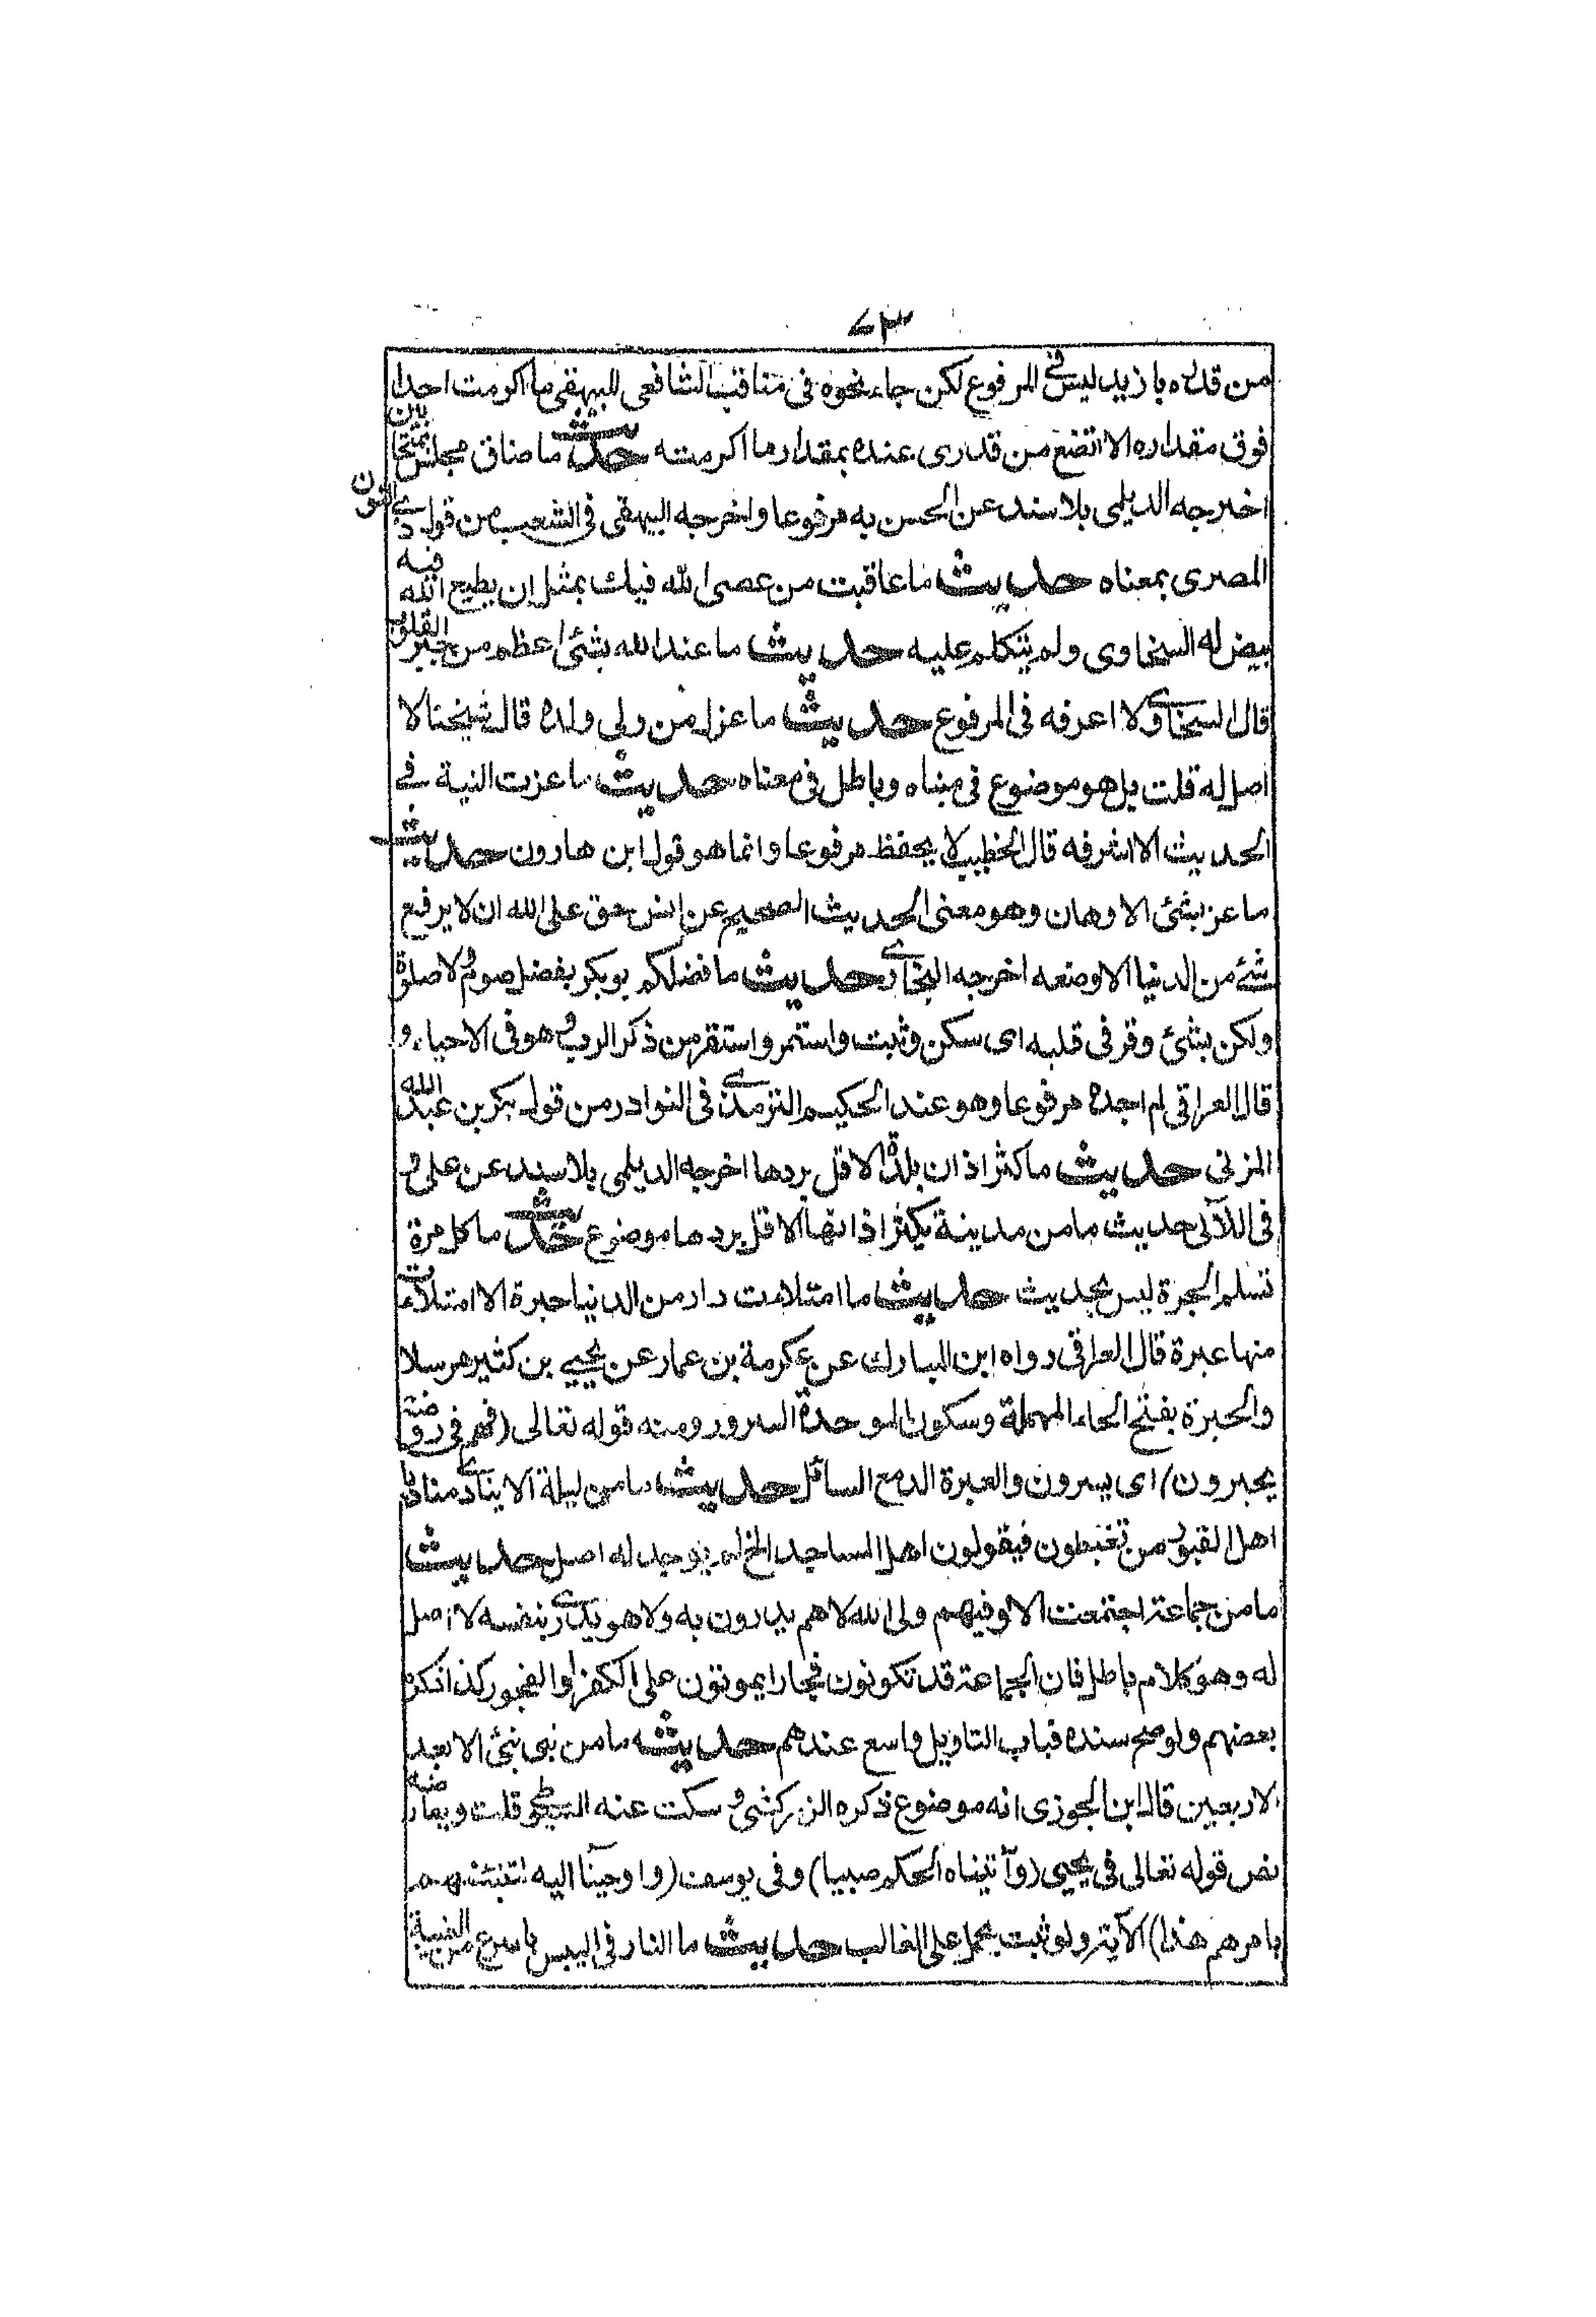 ٧٣
من قدره بازيد ليس في المرفوع لكن جاء نحوه في مناقب الشافعي للبيهقي ما اكرمت احدا
فوق مقداره الا اتضع من قدري عنده بمقدار ما اكرمته حديث ما ضاق مجلس بمتحابين
اخرجه الديلمي بلا سند عن الحسن به مرفوعا واخرجه البيهقي في الشعب من قول ذي النون
المصري بمعناه حديث ما عاقبت من عصى الله فيك بمثل ان يطيع الله فيه
بيض له السخاوي ولم يتكلم عليه حديث ما عند الله بشئ اعظم من جبر القلوب
قال السخاوي ولا اعرفه في المرفوع حديث ما عزل من ولى ولده قال شيخنا لا
اصل له قلت بل هو موضوع في مبناه وباطل في معناه حديث ما عزت النية في
الحديث الا لشرفه قال الخطيب لا يحفظ مرفوعا وانما هو قول ابن هارون حديث
ما عز بشئ الا وهان وهو معنى الحديث الصحيح عن انس حق على الله ان لا يرفع
شئ من الدنيا الا وضعه اخرجه البخاري حديث ما فضلكم بوبكر بفضل صوم ولا صلوة
ولكن بشئ وقر في قلبه اى سكن وثبت واستمر واستقر من ذكر الرب وهو في الاحياء و
قال العراقي لم اجده مرفوعا وهو عند الحكيم الترمذي في النوادر من قول بكر بن عبد الله
المزني حديث ما كثر اذان بلدة الا قل بردها اخرجه الديلمي بلا سند عن على و
في اللآلى حديث ما من مدينة يكثر اذانها الا قل بردها موضوع حديث ما كل مرة
تسلم الجرة ليس بحديث حديث ما امتلاءت دار من الدنيا حبرة الا امتلأت
منها عبرة قال العراقي رواه ابن المبارك عن عكرمة بن عمار عن يحيى بن كثير مرسلا
والحبرة بفتح الحاء المهملة وسكون الموحدة السرور ومنه قوله تعالى (فهم في روضة
يحبرون) اى يسرون والعبرة الدمع السائل حديث ما من ليلة الا ينادي مناد يا
اهل القبور من تغبطون فيقولون اهل المساجد الخ لم يوجد له اصل حديث
ما من جماعة اجتمعت الا وفيهم ولى الله لا هم يدرون به ولا هو يدري بنفسه لا اصل
له وهو كلام باطل فان الجماعة قد تكونون فجارا يموتون على الكفر والفجور كذا ذكره
بعضهم ولو صح سنده فباب التاويل واسع عندهم حديث ما من نبي نبئ الا بعد
لاربعين قال ابن الجوزي انه موضوع ذكره الزركشي وسكت عنه السيوطي قلت ويعارضه
نص قوله تعالى في يحيى (وآتيناه الحكم صبيا) وفي يوسف (واوحينا اليه لتنبئنهم
بامرهم هذا) الآية ولو ثبت يحمل على الغالب حديث ما النار في اليبس باسرع من الغيبة